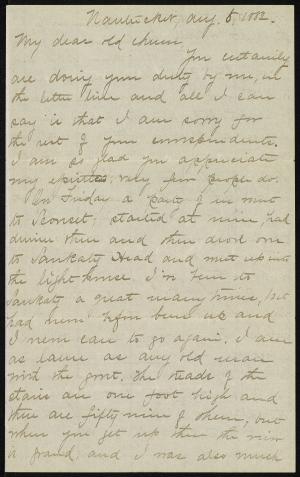 Nantucket, Aug. 8, 1882.
My dear old chum,
You certainly
are doing your duty by me, in
the letter line and all I can
say is that I am sorry for
the rest of your correspondents.
I am so glad you appreciate
my epistles; very few people do.
On Friday a party of us went
to Sconset; started at nine, had
dinner there and then drove over
to Sankaty Head and went up into
the light-house. I've been to
Sankaty a great many times, but
had never before been up and
I never care to go again. I am
as lame as any old man
with the gout. The treads of the
stairs are one foot high and
there are fifty nine of them, but
when you get up there the view
is grand, and I was also much